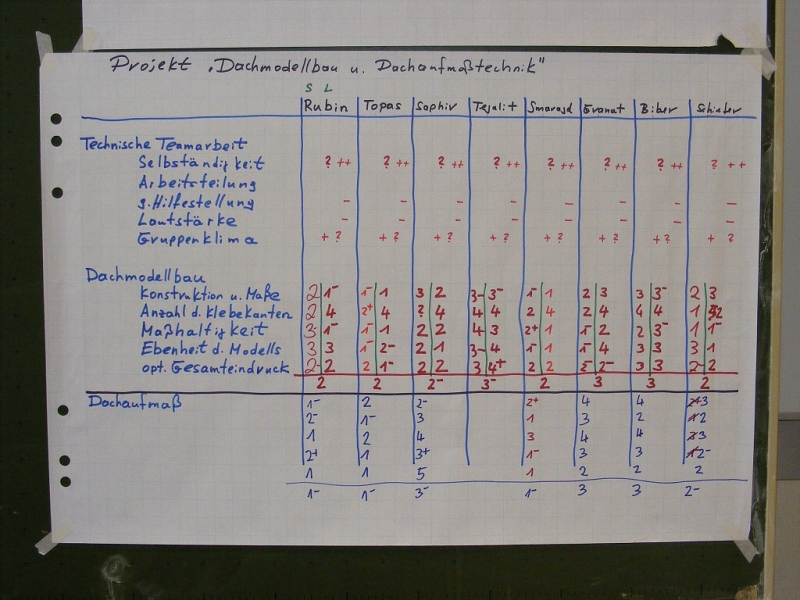 Projekt „Dachmodellbau u. Dachaufmaßtechnik"
S L
Rubin Topas Saphir Tejalit Smaragd Granat Biber Schieber
Technische Teamarbeit
Selbständigkeit ? ++ ? ++ ? ++ ? ++ ? ++ ? ++ ? ++ ? ++
Arbeitsteilung
g. Hilfestellung - - - - - - - -
Lautstärke - - - - - - - -
Gruppenklima + ? + ? + ? + ? + ? + ? + ? + ?
Dachmodellbau
Konstruktion u. Maße 2 1- 1- 1 3 2 3- 3- 1- 1 2 3 3 3- 2 3
Anzahl d. Klebekanten 2 4 2+ 4 ? 4 4 4 2 4 2 4 4 4 1 2
Maßhaltigkeit 3 1- 1- 1 2 2 4 3 2+ 1 1- 2 2 3- 1 1-
Ebenheit d. Modells 3 3 1- 2- 2 1 3- 4 1- 1 1- 4 3 3 3 1
opt. Gesamteindruck 2- 2 2 1- 2 2 3 4+ 2 2 2- 2- 3 3 2- 2
2 2 2- 3- 2 3 3 2
Dachaufmaß 1- 2 2- 2+ 4 4 3
2- 1- 3 1 3 2 2
1 2 4 3 4 4 3
2+ 1 3+ 1- 3 3 2-
1 1 5 1 2 2 2
1- 1- 3- 1- 3 3 2-